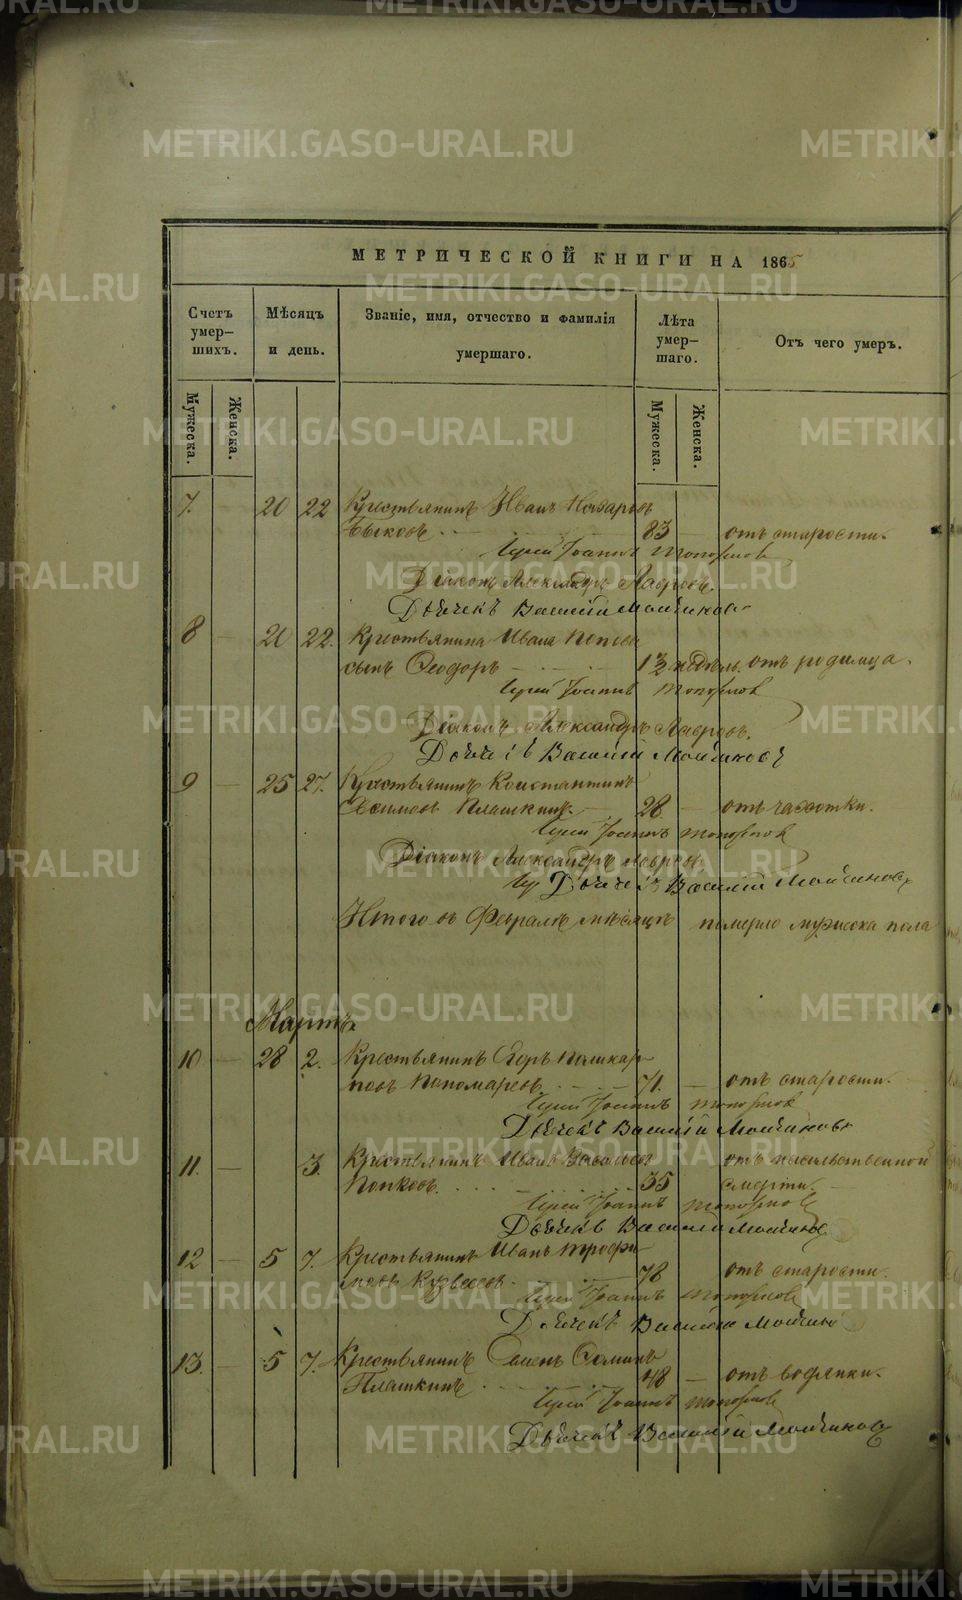 METRIKI.GASO-URAL.RU
МЕТРИЧЕСКОЙ КНИГИ НА 1865
Счетъ умер-шихъ.
Мѣсяцъ и день.
Званіе, имя, отчество и фамилія умершаго.
Лѣта умер-шаго.
Отъ чего умеръ.
Мужеска.
Женска.
Мужеска.
Женска.
7. 20 22 Крестьянинъ Иванъ Назаровъ
Быковъ 83 — отъ старости.
Іерей Іоаннъ Топорковъ
Діаконъ Александръ Лавровъ.
Дьячекъ Василій
8 — 20 22. Крестьянина Ивана Попова
сынъ Ѳеодоръ — 13 недѣль. отъ родимца.
Іерей Іоаннъ Топорковъ
Діаконъ Александръ Лавровъ.
Василій
9 — 25 27. Крестьянинъ Константинъ
Плашкинъ — 28 — отъ чахотки.
Іерей Іоаннъ Топорковъ
Діаконъ Александръ Лавровъ
Василій
Итого въ Февралѣ мѣсяцѣ померло мужеска пола
Мартъ.
10 — 28 2. Крестьянинъ Егоръ Поликар-
повъ Пономаревъ 71. — отъ старости.
Іерей Іоаннъ Топорковъ
Дьячекъ Василій
11. — 3. Крестьянинъ Иванъ отъ насильственной
Попковъ. 35 смерти. —
Іерей Іоаннъ Топорковъ
Дьячекъ Василій
12 — 5 7. Крестьянинъ Иванъ Трофи-
мовъ 78 отъ старости.
Іерей Іоаннъ Топорковъ
Дьячекъ Василій
13. — 5 7. Крестьянинъ Семенъ
Плашкинъ 48 — отъ водянки.
Іерей Іоаннъ Топорковъ
Дьячекъ Василій